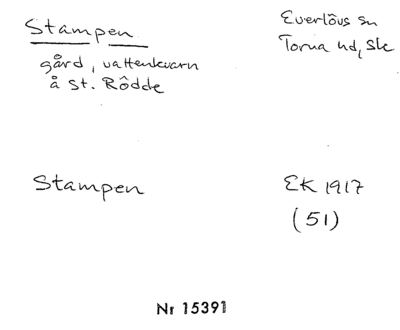 Stampen
gård, vattenkvarn
å St. Rödde
Everlövs sn
Torna hd, Sk
Stampen
EK 1917
(51)
Nr 15391